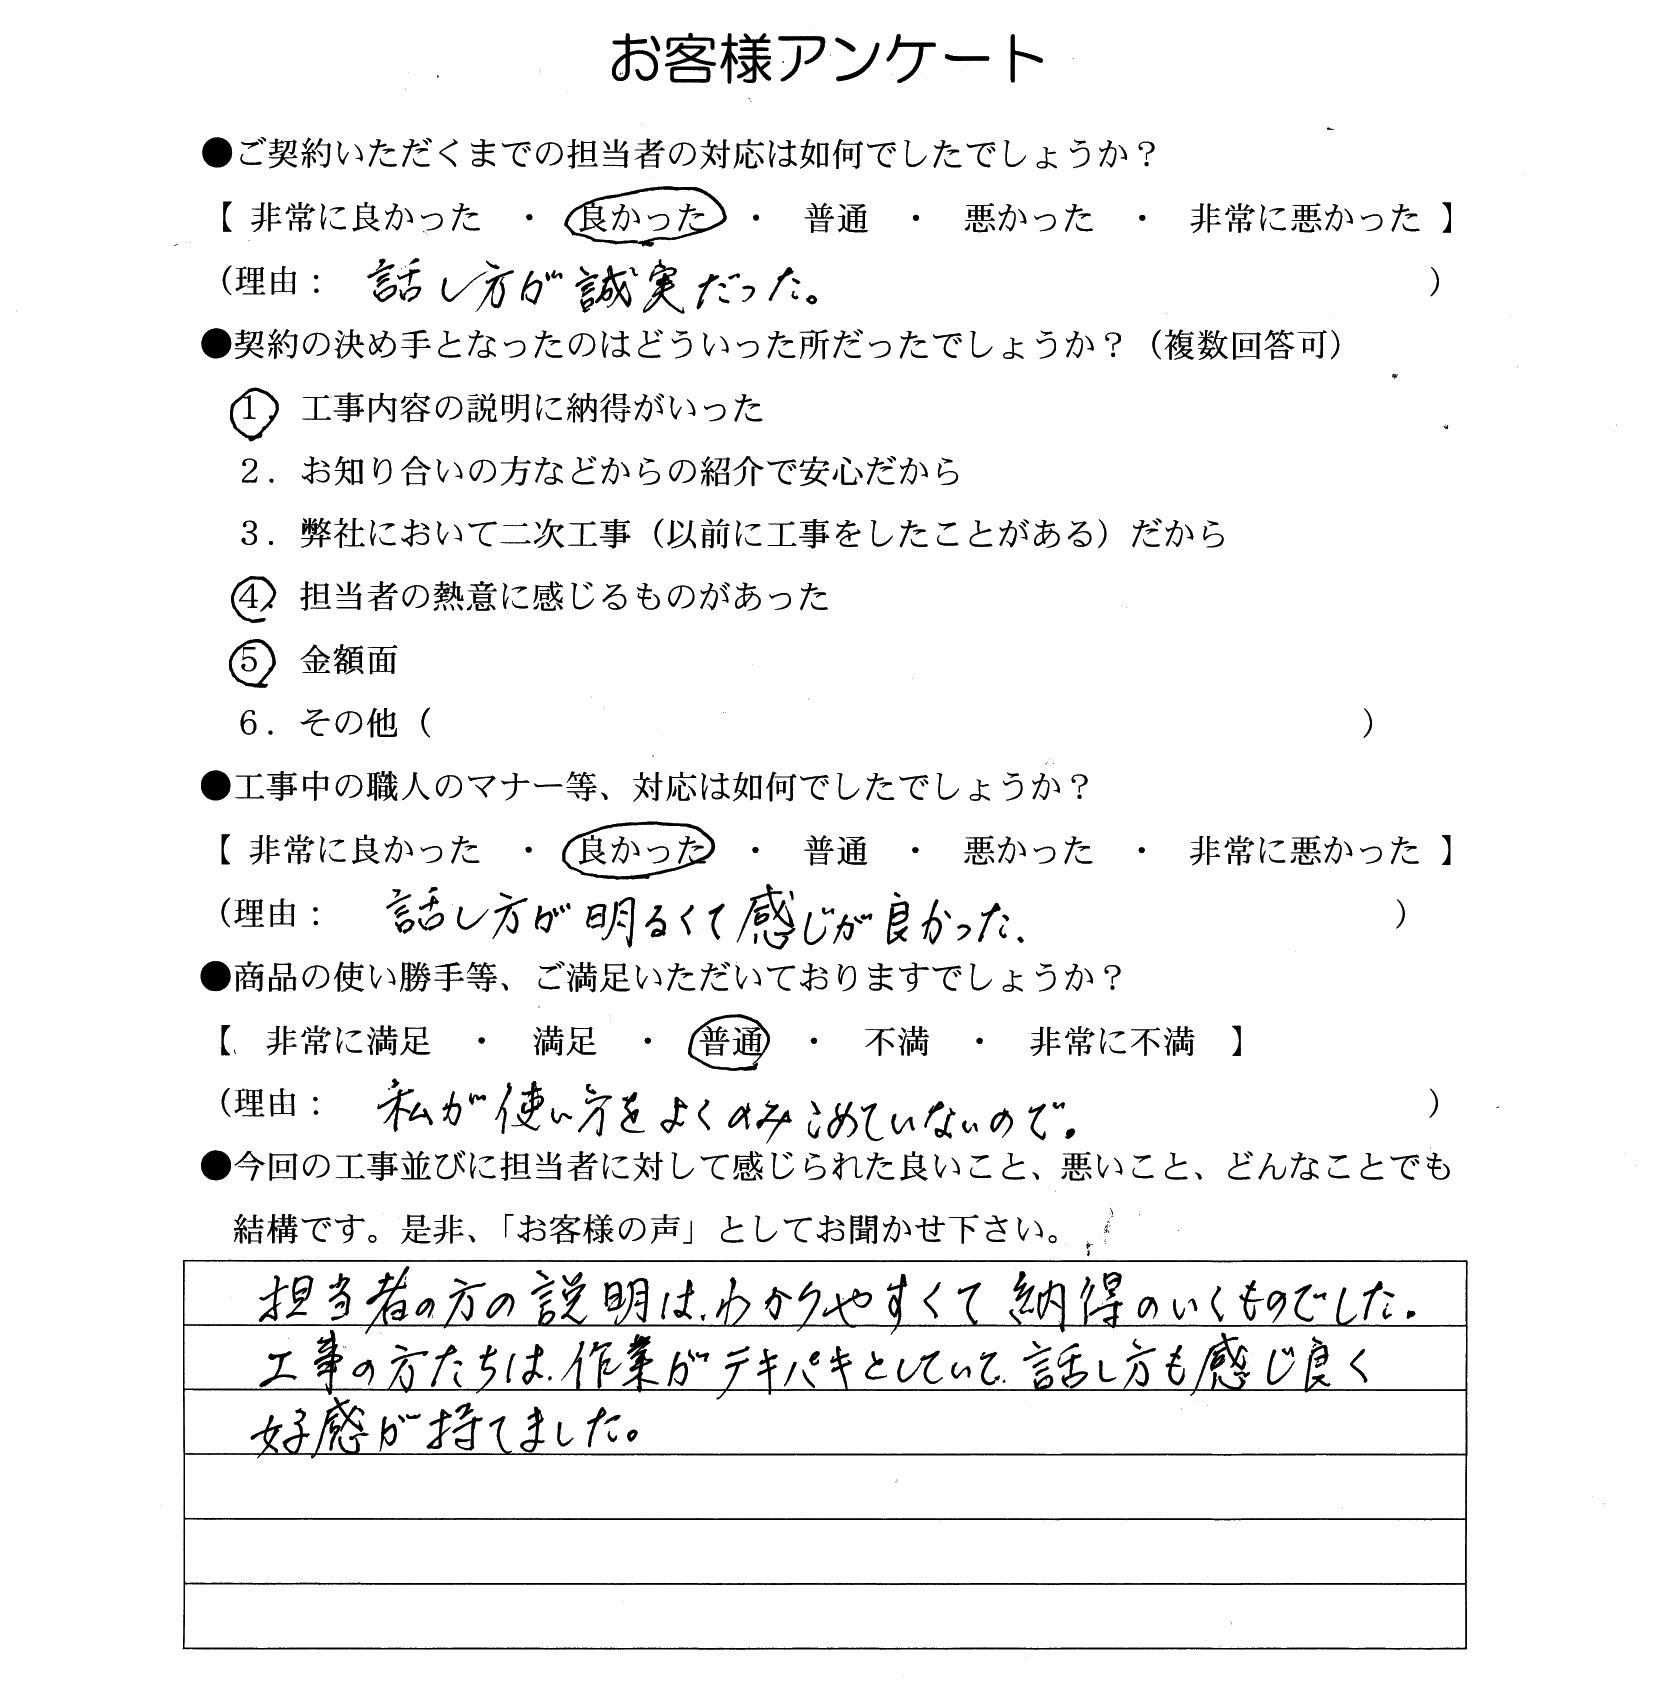 お客様アンケート
●ご契約いただくまでの担当者の対応は如何でしたでしょうか？
【 非常に良かった ・ 良かった ・ 普通 ・ 悪かった ・ 非常に悪かった 】
（理由： 話し方が誠実だった。 ）
●契約の決め手となったのはどういった所だったでしょうか？（複数回答可）
１．工事内容の説明に納得がいった
２．お知り合いの方などからの紹介で安心だから
３．弊社において二次工事（以前に工事をしたことがある）だから
４．担当者の熱意に感じるものがあった
５ 金額面
６．その他（ ）
●工事中の職人のマナー等、対応は如何でしたでしょうか？
【 非常に良かった ・ 良かった ・ 普通 ・ 悪かった ・ 非常に悪かった 】
（理由： 話し方が明るくて感じが良かった、 ）
●商品の使い勝手等、ご満足いただいておりますでしょうか？
【 非常に満足 ・ 満足 ・ 普通 ・ 不満 ・ 非常に不満 】
（理由： 私が使い方をよくのみこめていないので。 ）
●今回の工事並びに担当者に対して感じられた良いこと、悪いこと、どんなことでも
結構です。是非、「お客様の声」としてお聞かせ下さい。
担当者の方の説明は、わかりやすくて納得のいくものでした。
工事の方たちは、作業がテキパキとしていて、話し方も感じ良く
好感が持てました。